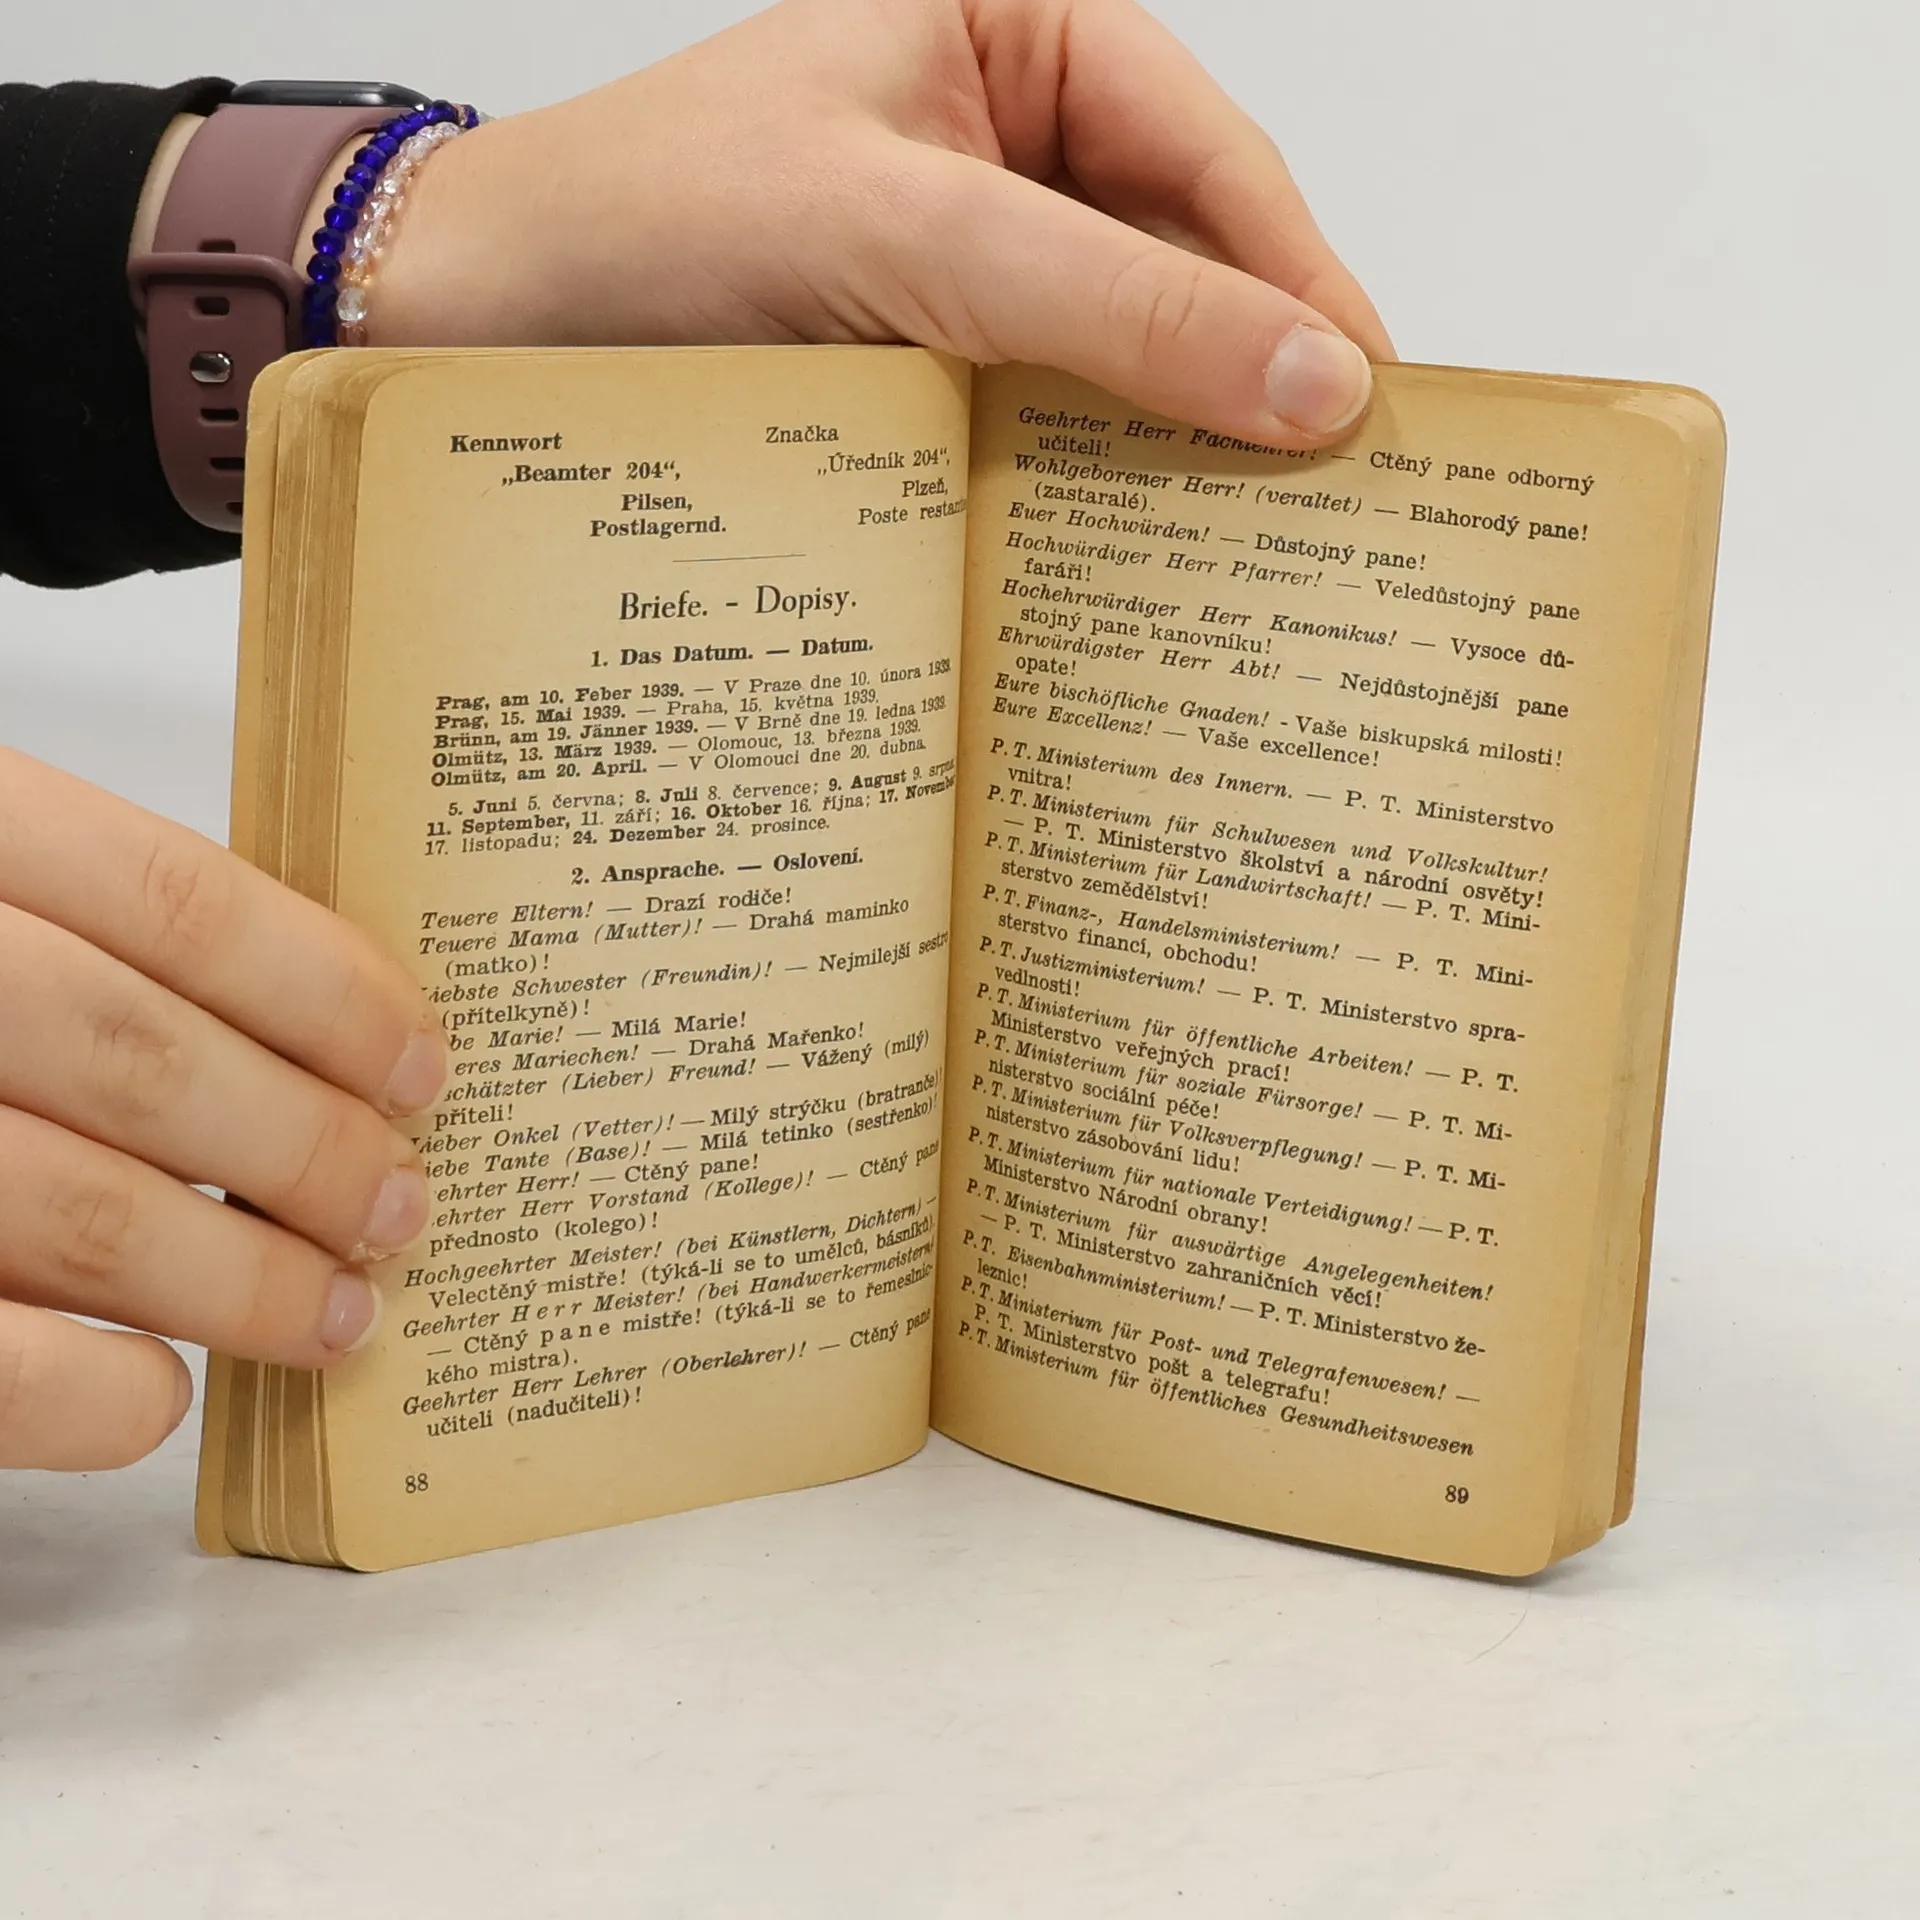 Kennwort Značka
„Beamter 204“, „Úředník 204“,
Pilsen, Plzeň,
Postlagernd. Poste
Briefe. - Dopisy.
1. Das Datum. — Datum.
Prag, am 10. Feber 1939. — V Praze dne 10. února 1939.
Prag, 15. Mai 1939. — Praha, 15. května 1939.
Brünn, am 19. Jänner 1939. — V Brně dne 19. ledna 1939.
Olmütz, 13. März 1939. — Olomouc, 13. března 1939.
Olmütz, am 20. April. — V Olomouci dne 20. dubna.
5. Juni 5. června; 8. Juli 8. července; 9. August 9.
11. September, 11. září; 16. Oktober 16. října; 17.
17. listopadu; 24. Dezember 24. prosince.
2. Ansprache. — Oslovení.
Teuere Eltern! — Drazí rodiče!
Teuere Mama (Mutter)! — Drahá maminko
(matko)!
Schwester (Freundin)! — Nejmilejší
(přítelkyně)!
Marie! — Milá Marie!
Mariechen! — Drahá Mařenko!
(Lieber) Freund! — Vážený (milý)
příteli!
Lieber Onkel (Vetter)! — Milý strýčku (bratranče)!
Tante (Base)! — Milá tetinko (sestřenko)!
Herr! — Ctěný pane!
Herr Vorstand (Kollege)! — Ctěný pane
přednosto (kolego)!
Hochgeehrter Meister! (bei Künstlern, Dichtern) —
Velectěný mistře! (týká-li se to umělců, básníků).
Geehrter Herr Meister! (bei Handwerkermeistern)
— Ctěný pane mistře! (týká-li se to řemeslnic-
kého mistra).
Geehrter Herr Lehrer (Oberlehrer)! — Ctěný pane
učiteli (nadučiteli)!
88
Geehrter Herr Fachlehrer! — Ctěný pane odborný
učiteli!
Wohlgeborener Herr! (veraltet) — Blahorodý pane!
(zastaralé).
Euer Hochwürden! — Důstojný pane!
Hochwürdiger Herr Pfarrer! — Veledůstojný pane
faráři!
Hochehrwürdiger Herr Kanonikus! — Vysoce dů-
stojný pane kanovníku!
Ehrwürdigster Herr Abt! — Nejdůstojnější pane
opate!
Eure bischöfliche Gnaden! - Vaše biskupská milosti!
Eure Excellenz! — Vaše excellence!
P. T. Ministerium des Innern. — P. T. Ministerstvo
vnitra!
P. T. Ministerium für Schulwesen und Volkskultur!
— P. T. Ministerstvo školství a národní osvěty!
P. T. Ministerium für Landwirtschaft! — P. T. Mini-
sterstvo zemědělství!
P. T. Finanz-, Handelsministerium! — P. T. Mini-
sterstvo financí, obchodu!
P. T. Justizministerium! — P. T. Ministerstvo spra-
vedlnosti!
P. T. Ministerium für öffentliche Arbeiten! — P. T.
Ministerstvo veřejných prací!
P. T. Ministerium für soziale Fürsorge! — P. T. Mi-
nisterstvo sociální péče!
P. T. Ministerium für Volksverpflegung! — P. T. Mi-
nisterstvo zásobování lidu!
P. T. Ministerium für nationale Verteidigung! — P. T.
Ministerstvo Národní obrany!
P. T. Ministerium für auswärtige Angelegenheiten!
— P. T. Ministerstvo zahraničních věcí!
P. T. Eisenbahnministerium! — P. T. Ministerstvo že-
leznic!
P. T. Ministerium für Post- und Telegrafenwesen! —
P. T. Ministerstvo pošt a telegrafu!
P. T. Ministerium für öffentliches Gesundheitswesen
89